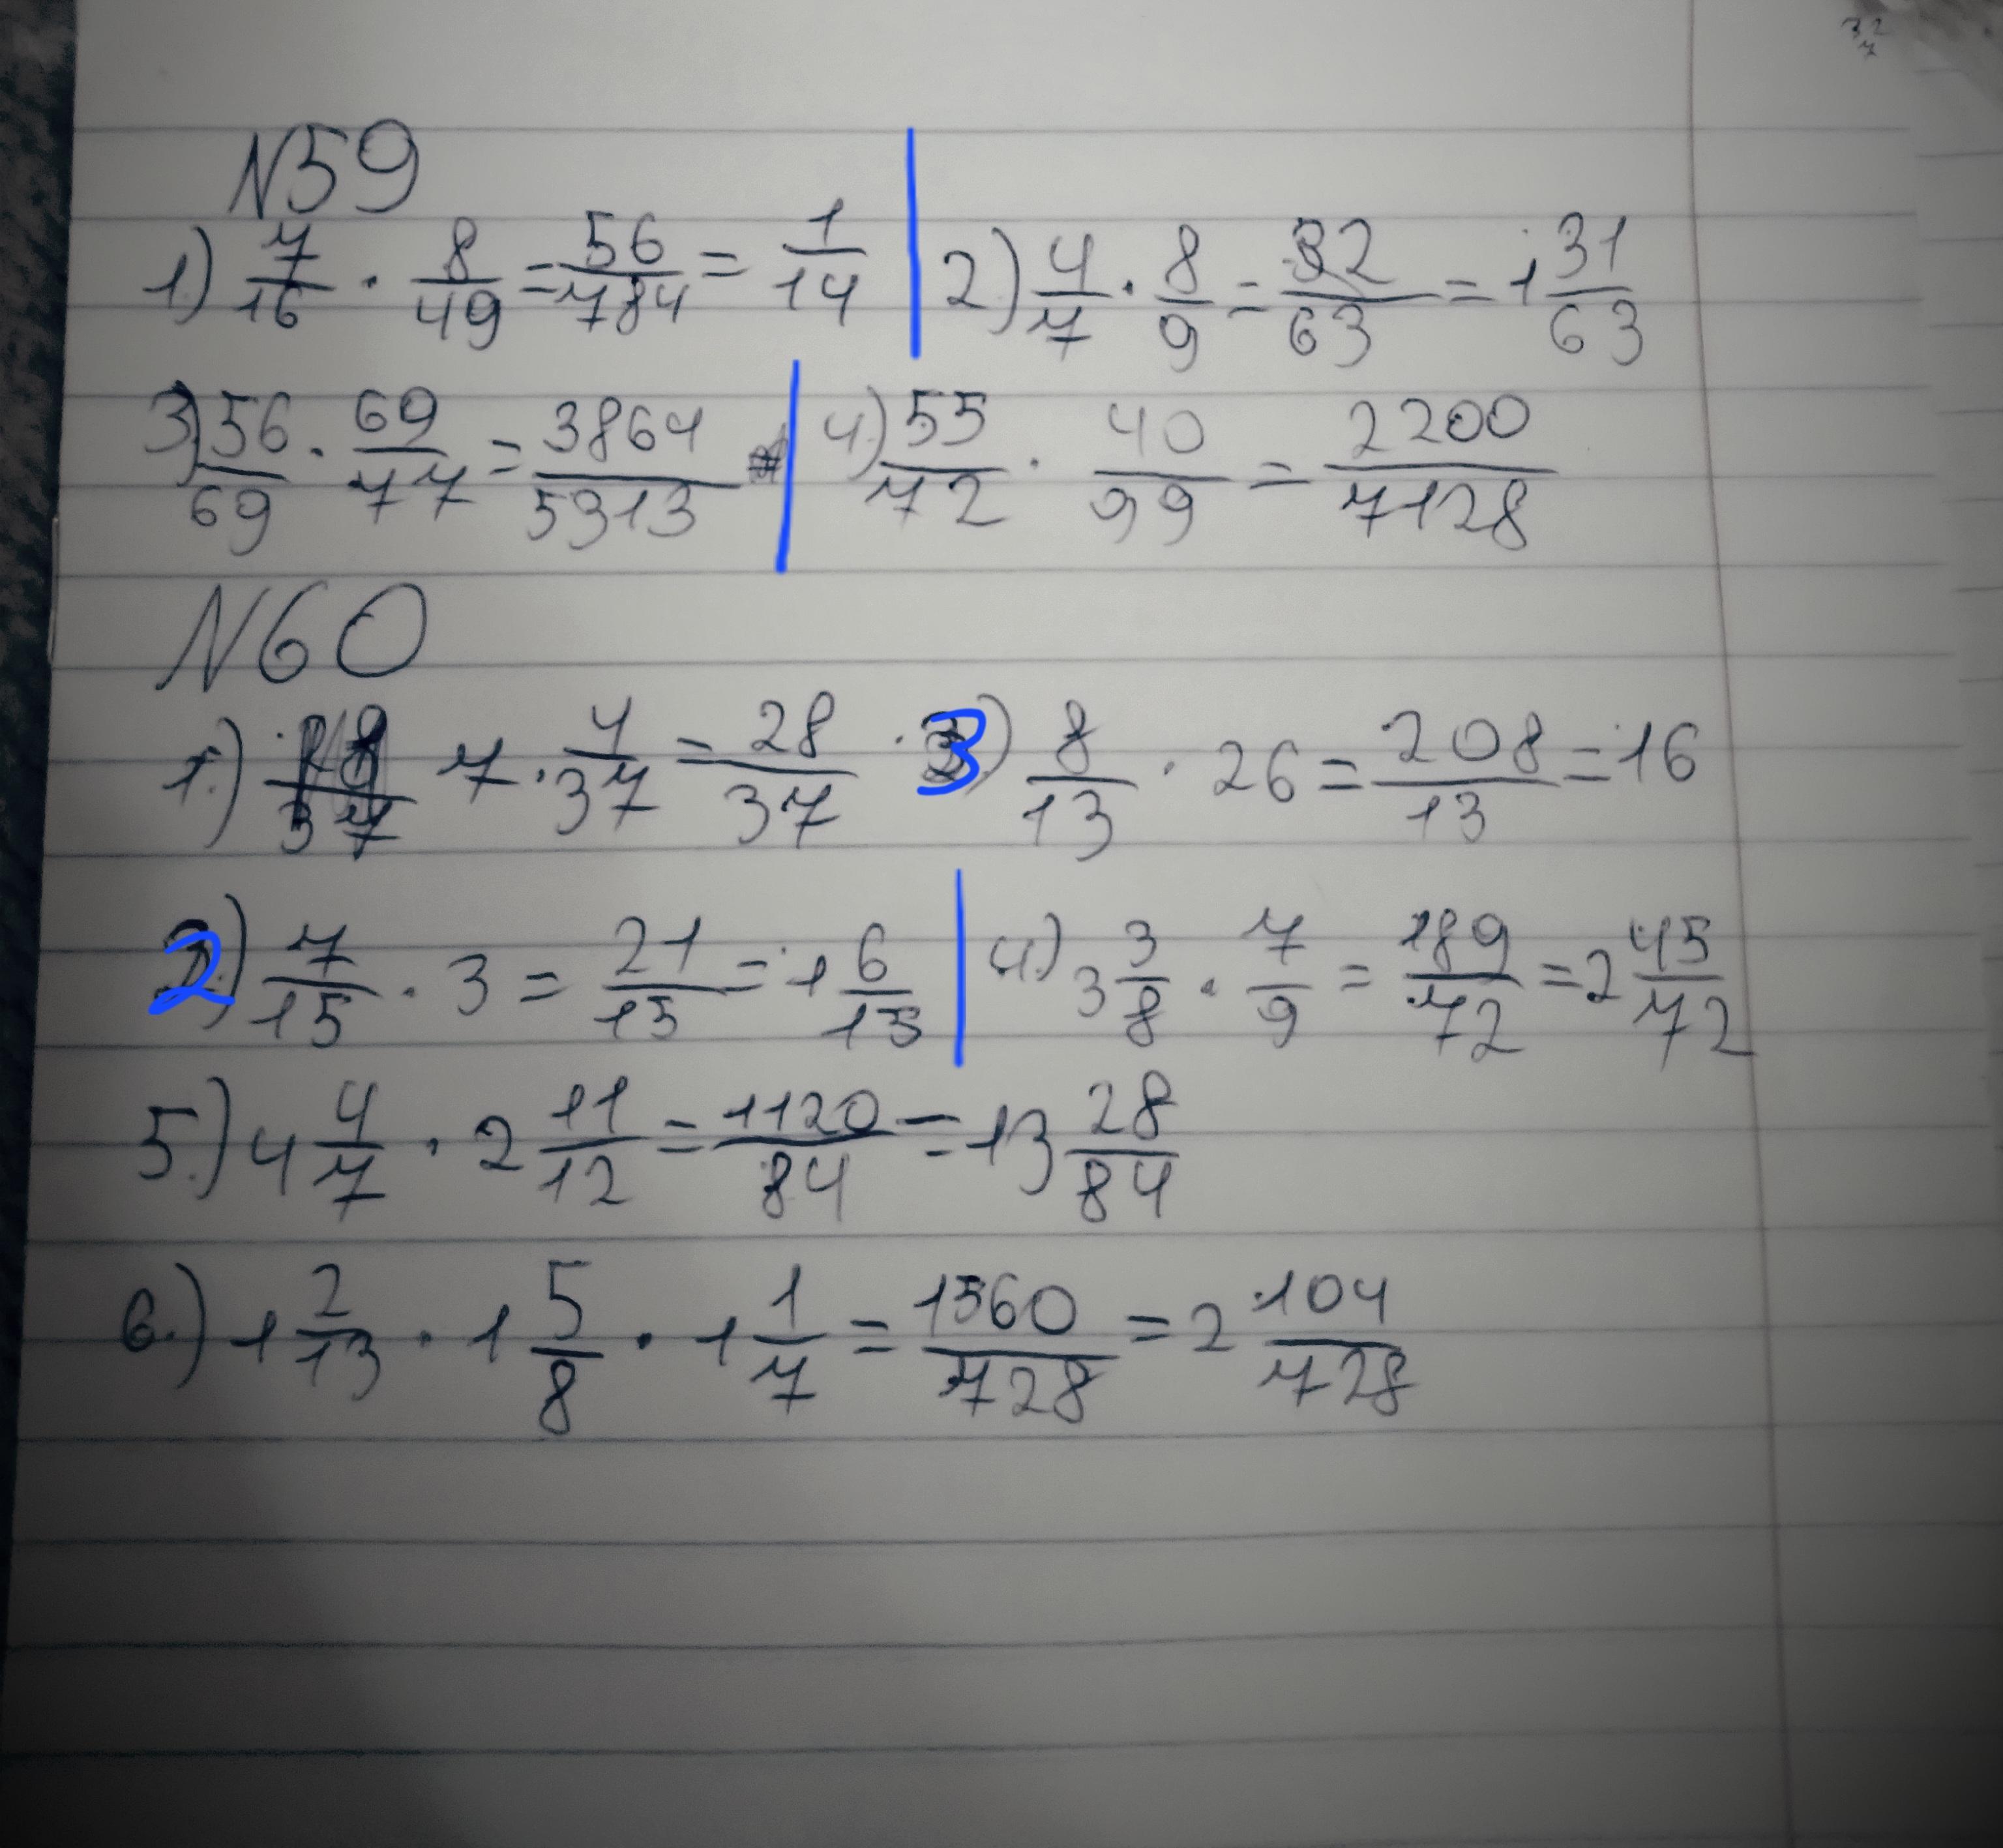 N59
1) 7/16 · 8/49 = 56/784 = 1/14 | 2) 4/7 · 8/9 = 32/63 = 1 31/63
3) 56/69 · 69/77 = 3864/5313 | 4) 55/72 · 40/99 = 2200/7128
N60
1.) 7 · 4/37 = 28/37 3) 8/13 · 26 = 208/13 = 16
2.) 7/15 · 3 = 21/15 = 1 6/15 | 4.) 3 3/8 · 7/9 = 189/72 = 2 45/72
5.) 4 4/7 · 2 11/12 = 1120/84 = 13 28/84
6.) 1 2/13 · 1 5/8 · 1 1/7 = 1560/728 = 2 104/728